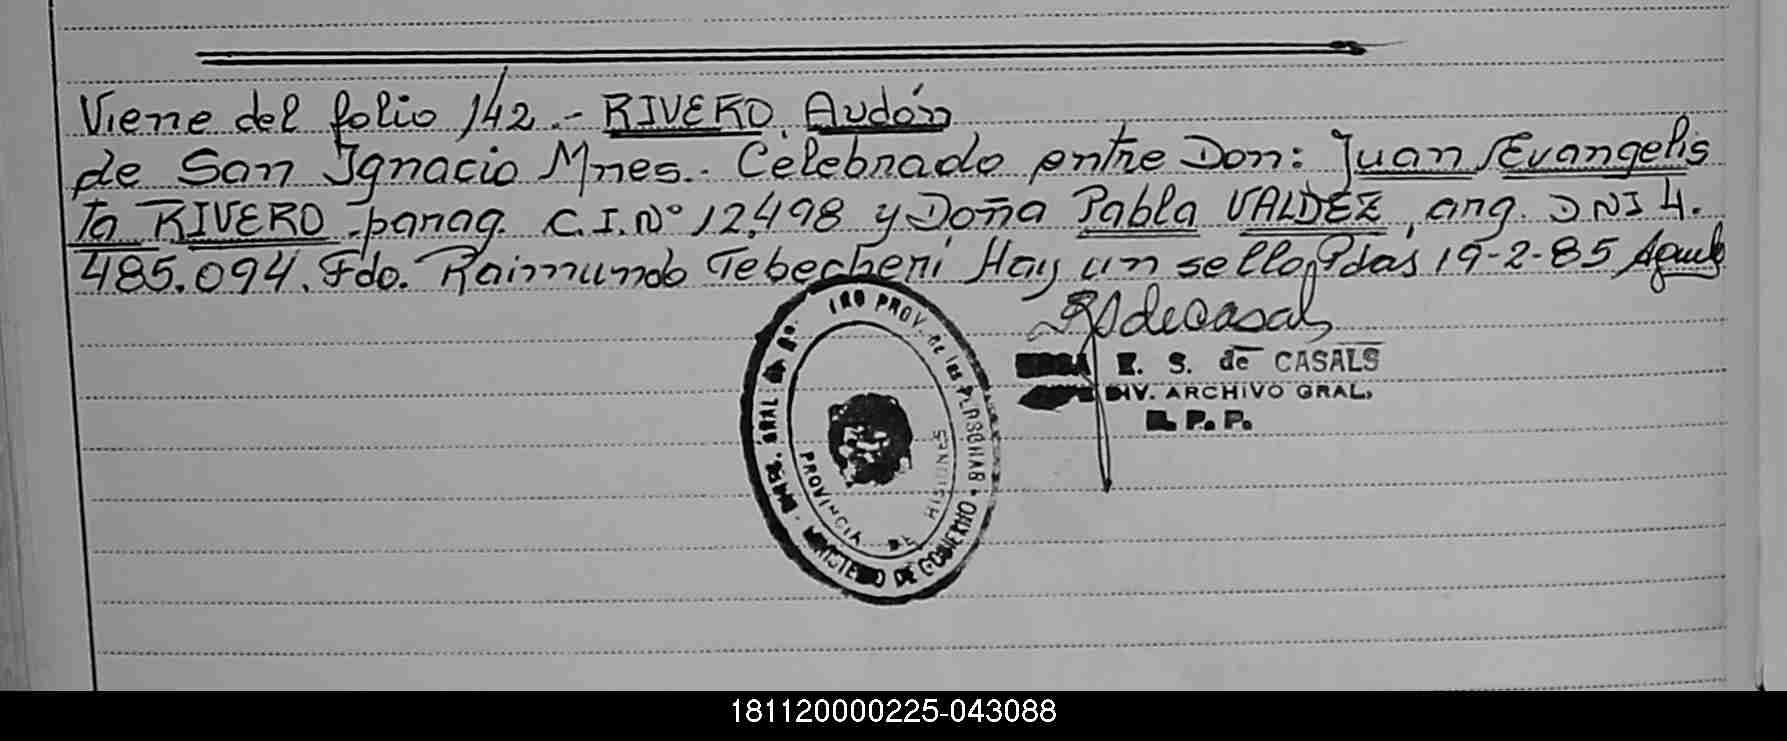 Viene del folio 142.- RIVERO, Audón
de San Ignacio Mnes.- Celebrado entre Don: Juan Evangelis
ta RIVERO -parag. C.I.Nº 12,498 y Doña Pabla VALDEZ, arg. DNI 4.
485.094. Fdo. Raimundo Tebecheri Hay un sello Pdas 19-2-85
E. S. de CASALS
DIV. ARCHIVO GRAL.
R. P. P.
PROV. de las PERSONAS
MINISTERIO DE GOBIERNO
PROVINCIA DE
MISIONES
181120000225-043088